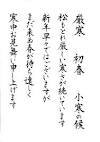 厳寒　初春　小寒の候
松もどれ厳しい寒さが続いています
新年早々でございますが
まだ来ぬ春が待ち遠しく
寒中お見舞い申し上げます